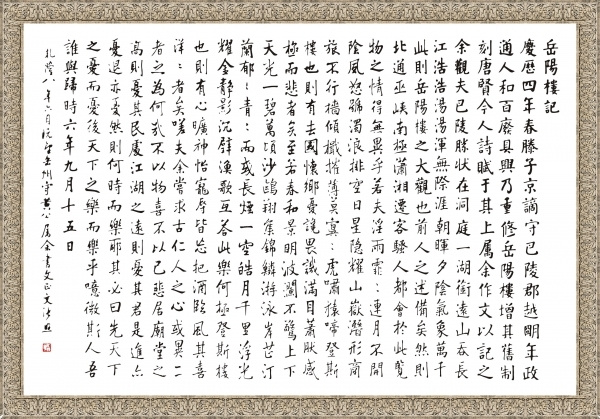 岳陽樓記
慶歷四年春滕子京謫守巴陵郡越明年政
通人和百廢具興乃重修岳陽樓增其舊制
刻唐賢今人詩賦于其上屬余作文以記之
余觀夫巴陵勝狀在洞庭一湖銜遠山吞長
江浩浩湯湯渾無際涯朝暉夕陰氣象萬千
此則岳陽樓之大觀也前人之述備矣然則
北通巫峽南極瀟湘遷客騷人都會於此覽
物之情得無異乎若夫淫雨霏:連月不開
陰風怒號濁浪排空日星隱耀山嶽潛形商
旅不行檣傾檝摧薄莫冥:虎嘯猿啼登斯
樓也則有去國懷鄉憂讒畏譏滿目蕭肰感
極而悲者矣至若春和景明波瀾不驚上下
天光一碧萬頃沙鷗翔集錦鱗游泳岸芷汀
蘭郁:青:而或長煙一空皓月千里浮光
耀金靜影沉壁漁歌互答此樂何極登斯樓
也則有心曠神怡寵辱皆忘把酒臨風其喜
洋:者矣嗟夫余嘗求古仁人之心或異二
者之為何哉不以物喜不以己悲居廟堂之
高則憂其民處江湖之遠則憂其君是進亦
憂退亦憂然則何時而樂耶其必曰先天下
之憂而憂後天下之樂而樂乎噫微斯人吾
誰與歸時六年九月十五日